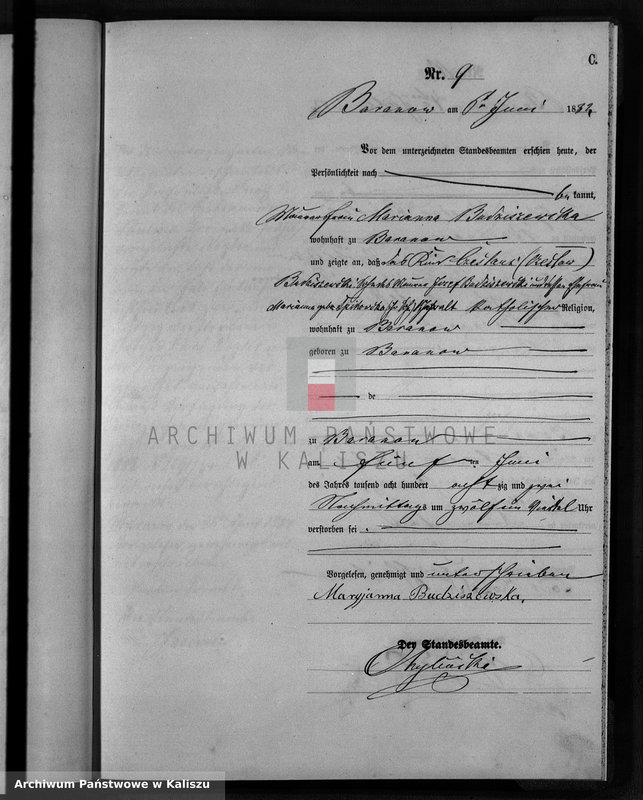 C.
Nr. 9
Baranow am 6ten Juni 1882
Vor dem unterzeichneten Standesbeamten erschien heute, der
Persönlichkeit nach
be kannt,
Maurerfrau Marianna Budziszewska
wohnhaft zu Baranow
und zeigte an, daß das Kind (Czeslaw)
Budziszewski, Josef Budziszewski und dessen Ehefrau
Marianna geb. alt katholischer Religion,
wohnhaft zu Baranow
geboren zu Baranow
de
zu Baranow
am fünf ten Juni
des Jahres tausend acht hundert acht zig und zwei
Nachmittags um zwölf ein Viertel Uhr
verstorben sei.
Vorgelesen, genehmigt und unterschrieben
Maryjanna Budziszewska,
Der Standesbeamte.
ARCHIWUM PAŃSTWOWE
W KALISZU
Archiwum Państwowe w Kaliszu